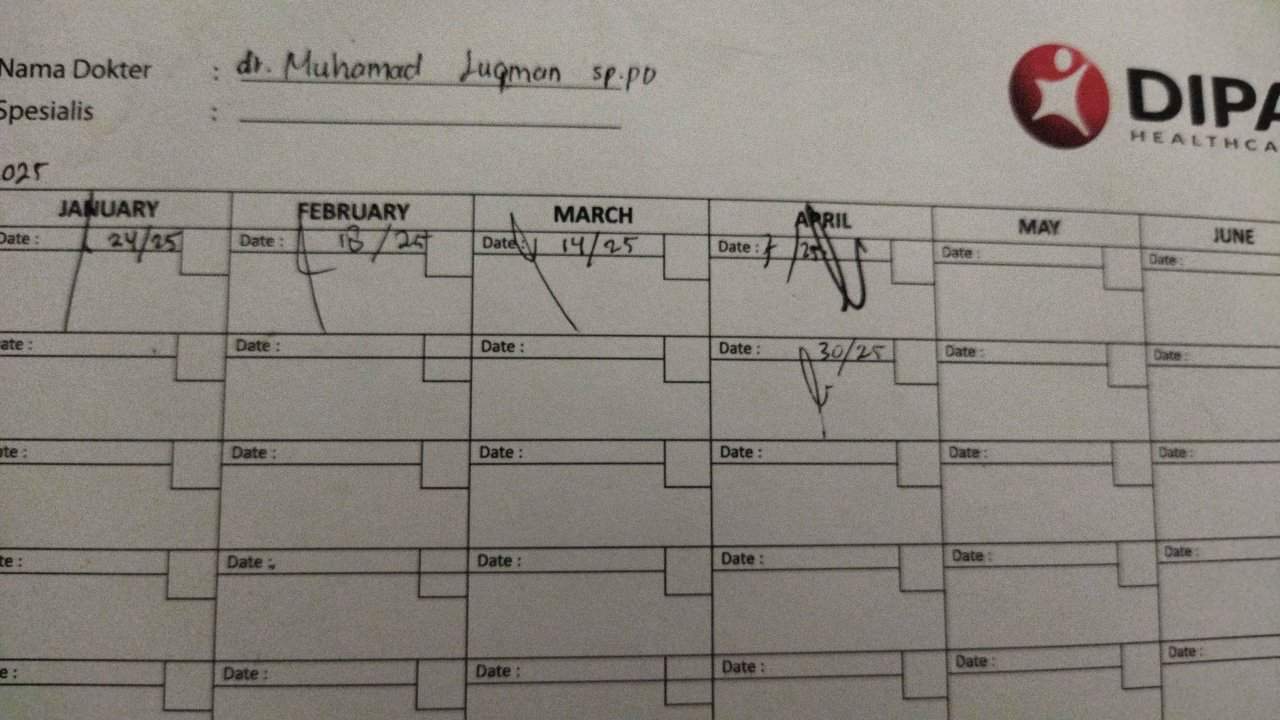 Nama Dokter : dr. Muhamad Luqman sp.pD
Spesialis :
DIPA
HEALTHCA
025
JANUARY FEBRUARY MARCH APRIL MAY JUNE
Date : 24/25 Date : 18/25 Date : 14/25 Date : 7/25 Date : Date :
ate : Date : Date : Date : 30/25 Date : Date :
te : Date : Date : Date : Date : Date :
te : Date : Date : Date : Date : Date :
e : Date : Date : Date : Date : Date :